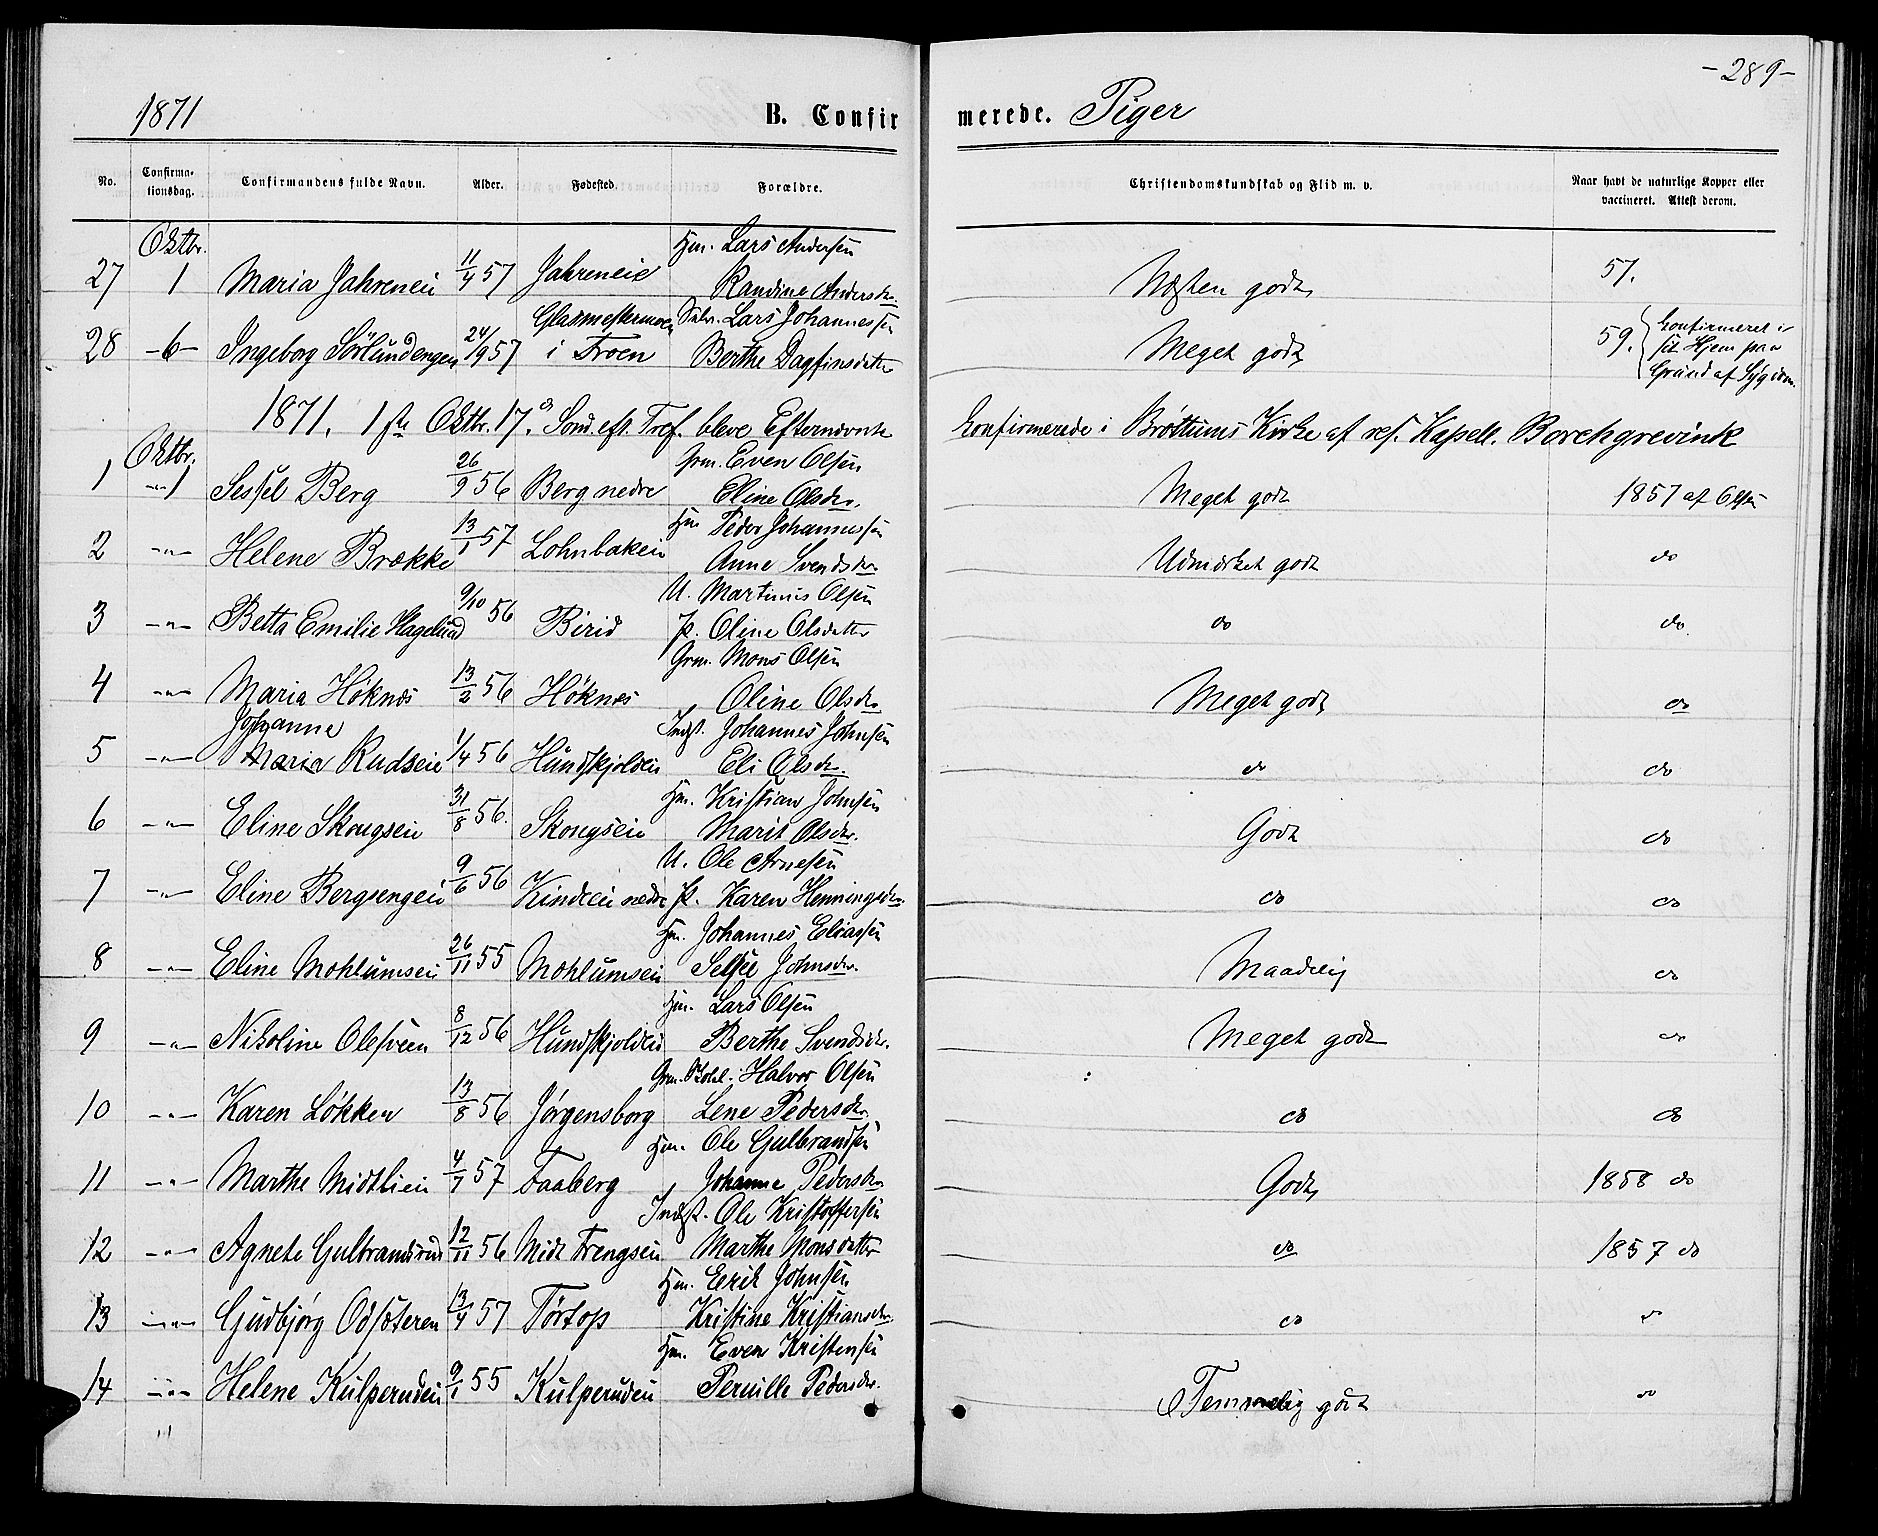 - 289 -
1871 B. Confirmerede. Piger
No. Confirmationsdag. Confirmandens fulde Navn. Alder. Fødested. Forældre. Christendomskundskab og Flid m. v. Naar havt de naturlige Kopper eller vaccineret. Attest derom.
Oktbr. Hm. Lars Andersen
27 1 Maria Jahreneie 11/4 57 Jahreneie Randine Andersdr. Næsten godt 57.
Glasmestermoen Selv. Lars Johannessen
28 -6- Ingeborg Sörlundengen 24/9 57 i Froen Berthe Dagfinsdatter Meget godt 59. Confirmeret i sit Hjem paa Grund af Sygdom.
1871. 1ste Oktbr. 17. Sönd. eft. Tref. bleve Efternævnte Confirmerede i Brøttums Kirke af res. Kapell. Borchgrevink
Oktbr. Grm. Even Olsen
1 -"-1 Sessel Berg 26/9 56 Berg nedre Eline Olsdr. Meget godt 1857 af Olsen
Hm Peder Johannessen
2 -"- Helene Brække 13/1 57 Lohnbakken Anne Svendsdr. Udmærket godt do
U. Martinus Olsen
3 -"- Betta Emilie Hagelund 9/10 56 Birid P. Oline Olsdatter do do.
Grm. Mons Olsen
4 -"- Maria Höknæs 13/2 56 Höknæs Oline Olsdr. Meget godt do
Johanne Indst. Johannes Johnsen
5 -"- Maria Rudseie 1/4 56 Hundskjoldeie Eli Olsdr. do do
Hm. Kristian Johnsen
6 -"- Eline Skougseie 31/8 56. Skougseie Marit Olsdr. Godt do
U. Ole Arnesen
7 -"- Eline Bergsengeie 9/6 56 Kindlie nedre P. Karen Henningsdr. do do
Hm. Johannes Eliassen
8 -"- Eline Mohlumseie 26/11 55 Mohlumseie Selsee Johnsdr. Maadelig do
Hm. Lars Olsen
9 -"- Nikoline Olesveen 8/12 56 Hundskjoldeie Berthe Svendsdr. Meget godt do
Grm. Halvor Olsen
10 -"- Karen Løkken 13/8 56 Jørgensborg Lene Pedersdr. do do
Hm. Ole Gulbrandsen
11 -"- Marthe Midtlien 4/7 57 Faaberg Johanne Pedersdr. Godt 1858 do
Indst. Ole Kristoffersen
12 -"- Agnete Gulbrandsrud 12/11 56 Midt Frengseie Marthe Monsdatter do 1857 do
Hm. Erik Johnsen
13 -"- Gudbjørg Odsæteren 13/4 57 Törtop Kristine Kristiansdr. do do
Hm. Even Kristensen
14 -"- Helene Kulperudeie 9/1 55 Kulperudeie Pernille Pedersdr. Temmelig godt do